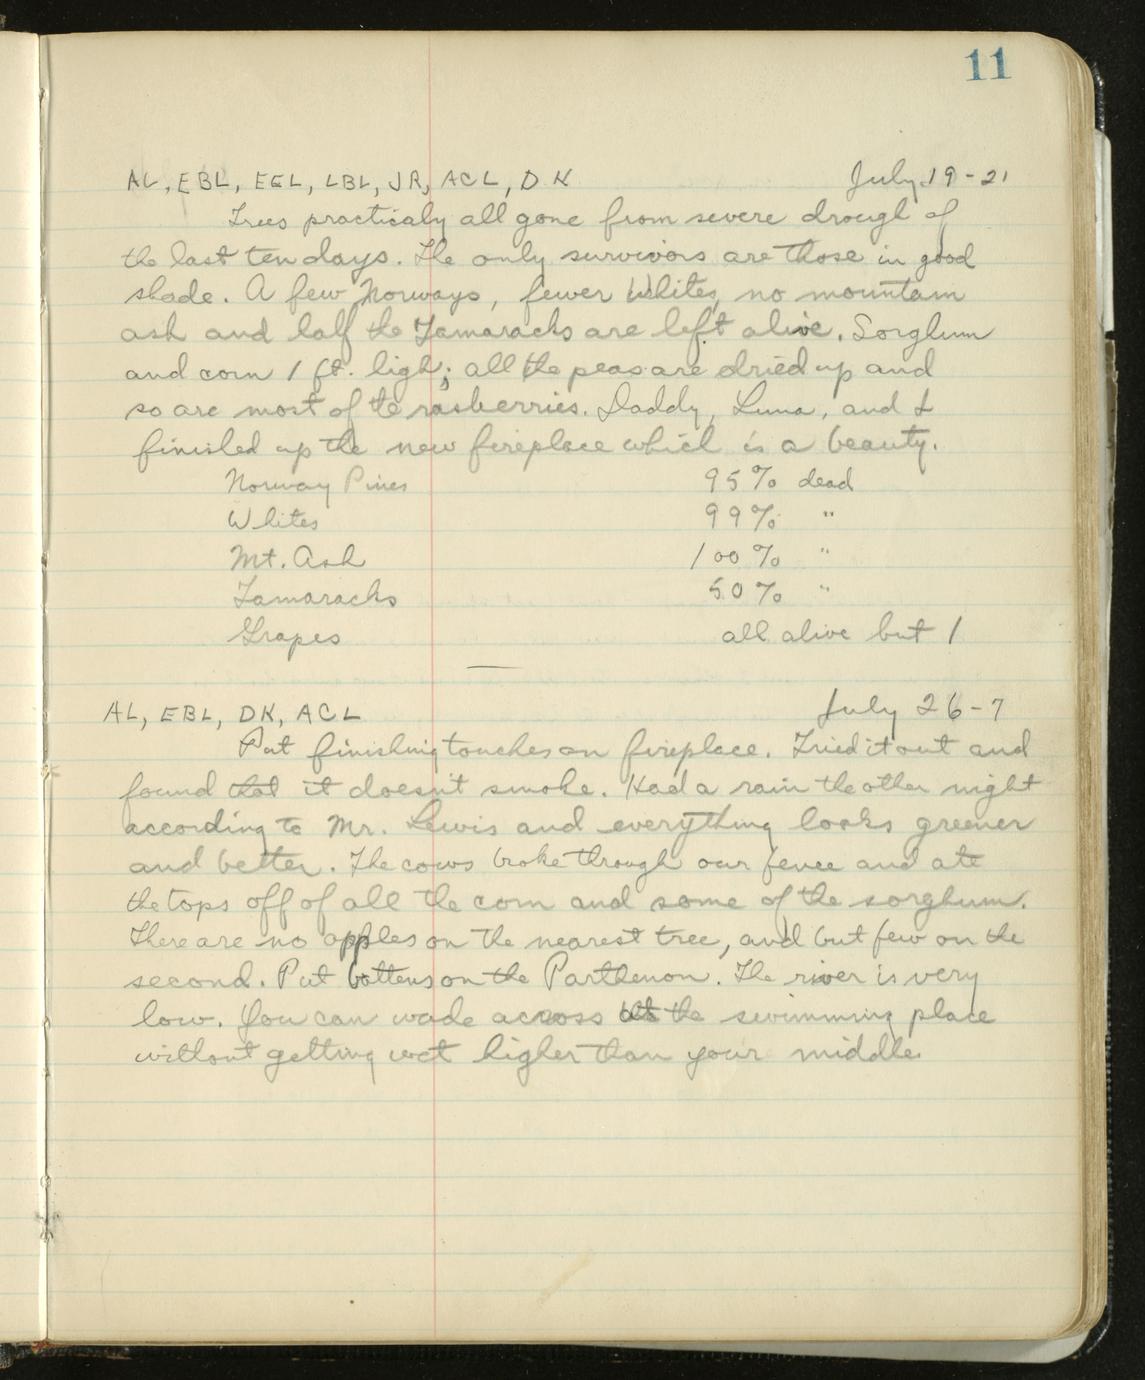 11
AL, EBL, EEL, LBL, JR, ACL, DK July 19-21
Trees practicaly all gone from severe drough of
the last ten days. The only survivors are those in good
shade. A few Norways, fewer Whites, no mountain
ash and half the Tamaracks are left alive. Sorghum
and corn 1 ft. high; all the peas are dried up and
so are most of the rasberries. Daddy, Luna, and I
finished up the new fireplace which is a beauty.
Norway Pines 95% dead
Whites 99% "
Mt. Ash 100% "
Tamaracks 50% "
Grapes all alive but 1
AL, EBL, DK, ACL July 26-7
Put finishing touches on fireplace. Tried it out and
found that it doesn't smoke. Had a rain the other night
according to Mr. Lewis and everything looks greener
and better. The cows broke through our fence and ate
the tops off of all the corn and some of the sorghum.
There are no apples on the nearest tree, and but few on the
second. Put battens on the Parthenon. The river is very
low. You can wade across at the swimming place
without getting wet higher than your middle.